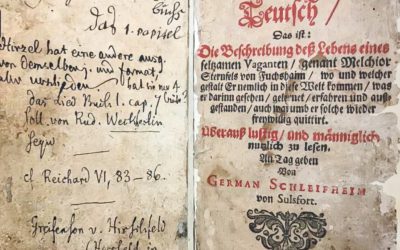 das 1. capitel
Hirzel hat eine andere ausg.
von demselben j. und format
aber verschieden
Das dies Buchs 1. cap.
soll von Rud. Weckherlin
seyn
cf Reichard VI, 83-86.
Greifenson v. Hirschfeld
in
Teutsch /
Das ist:
Die Beschreibung deß Lebens eines
seltzamen Vaganten / genant Melchior
Sternfels von Fuchshaim / wo und welcher
gestalt Er nemlich in diese Welt kommen / was
er darinn gesehen / gelernet / erfahren und auß-
gestanden / auch warumb er solche wieder
freywillig quittirt.
Überauß lustig / und männiglich
nutzlich zu lesen.
An Tag geben
Von
GERMAN SCHLEIFHEIM
von Sulsfort.